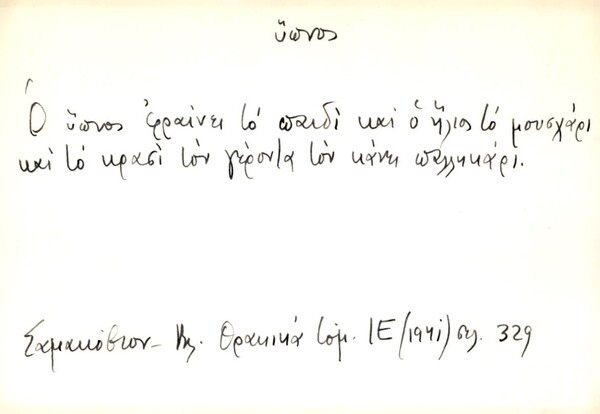 ὕπνος
Ὁ ὕπνος θραίνει τό παιδί καί ὁ ἥλιος τό μουσχάρι
καί τό κρασί τόν γέροντα τόν κάνει παλληκάρι.
Σαμακόβιον - Θρακικά τόμ. ΙΕ (1941) σελ. 329